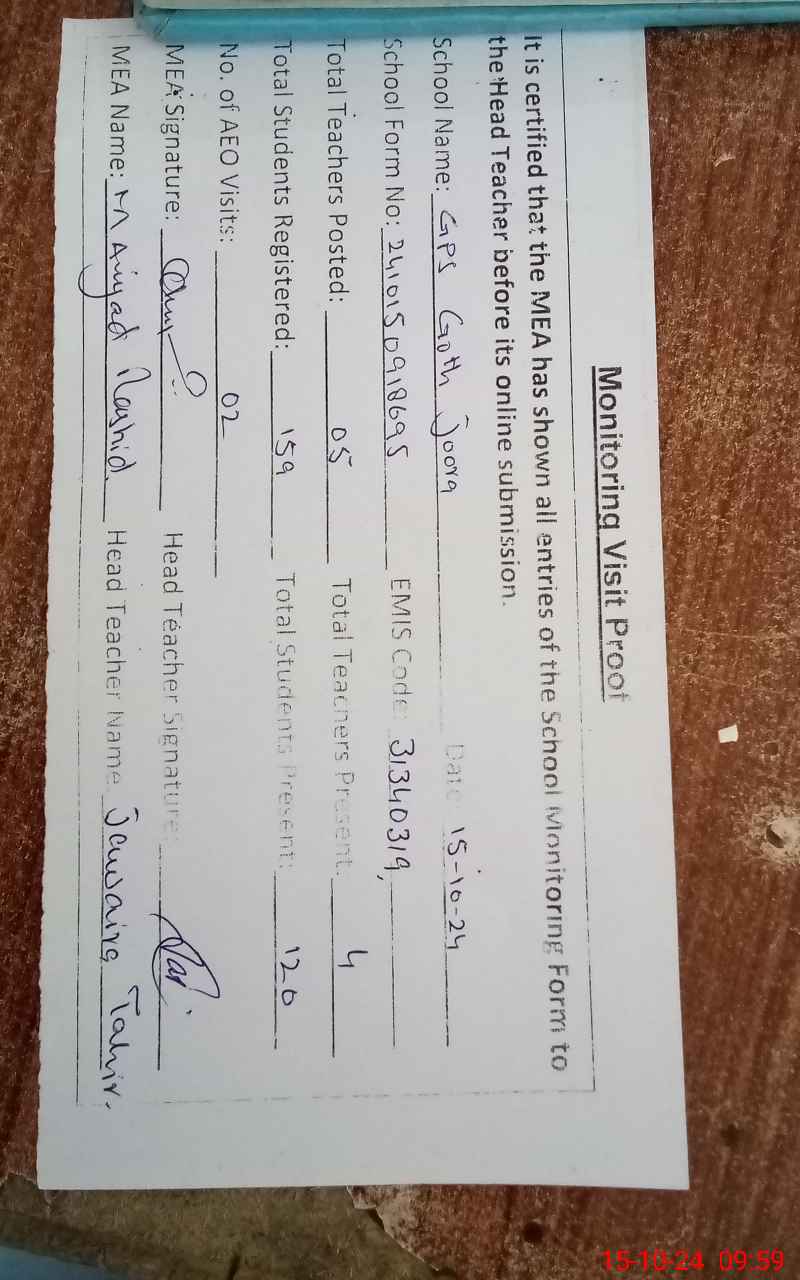 Monitoring Visit Proof
It is certified that the MEA has shown all entries of the School Monitoring Form to
the Head Teacher before its online submission.
School Name: GPS Goth Joora Date 15-10-24
School Form No: 2410150918695 EMIS Code: 31340319,
Total Teachers Posted: 05 Total Teachers Present: 4
Total Students Registered: 159 Total Students Present: 120
No. of AEO Visits: 02
MEA Signature: Head Teacher Signature:
MEA Name: M Amjad Rashid Head Teacher Name: Jawaira Tahir.
15-10-24 09:59